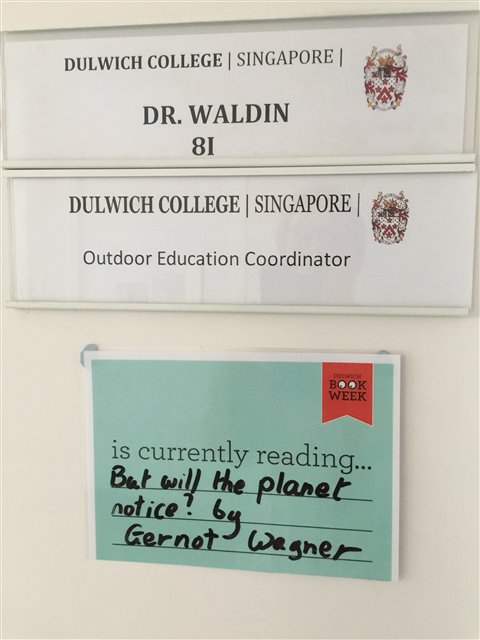 DULWICH COLLEGE | SINGAPORE |
DR. WALDIN
8I
DULWICH COLLEGE | SINGAPORE |
Outdoor Education Coordinator
DULWICH
BOOK
WEEK
is currently reading...
But will the planet
notice? by
Gernot Wagner